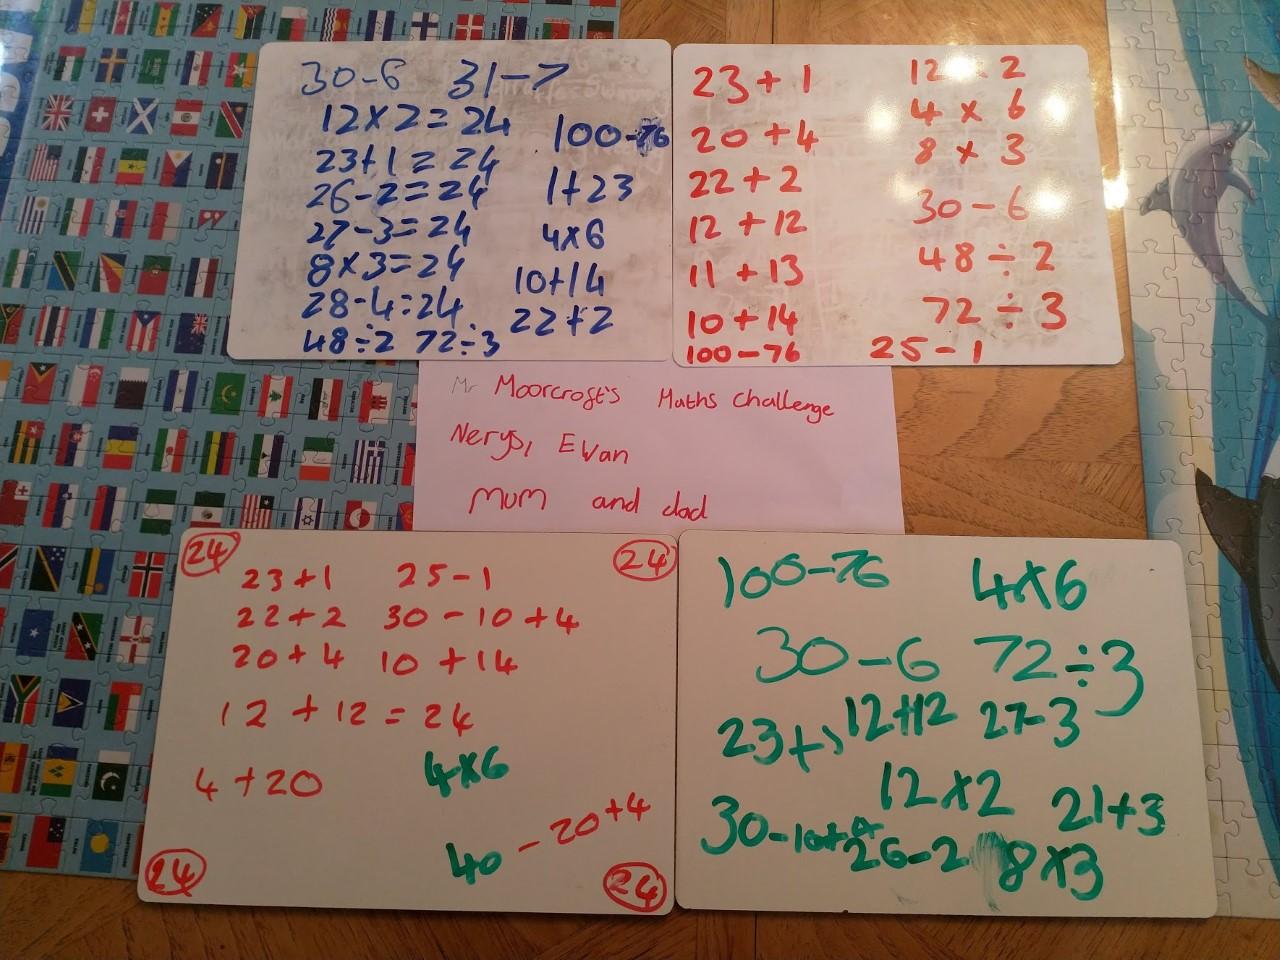 30-6 31-7
12x2=24
23+1=24
26-2=24
27-3=24
8x3=24
28-4=24
48÷2 72÷3
100-76
1+23
4x6
10+14
22+2
23 + 1
20 + 4
22 + 2
12 + 12
11 + 13
10 + 14
100-76
12 x 2
4 x 6
8 x 3
30 - 6
48 ÷ 2
72 ÷ 3
25 - 1
Mr Moorcroft's Maths Challenge
Nerys, Ewan
Mum and dad
24 24
23+1 25-1
22+2 30-10+4
20+4 10+14
12 + 12 = 24
4 + 20 4x6
40 - 20+4
24 24
100-76 4x6
30-6 72÷3
23+1 12+12 27-3
12x2 21+3
30-10+4 26-2 8x3